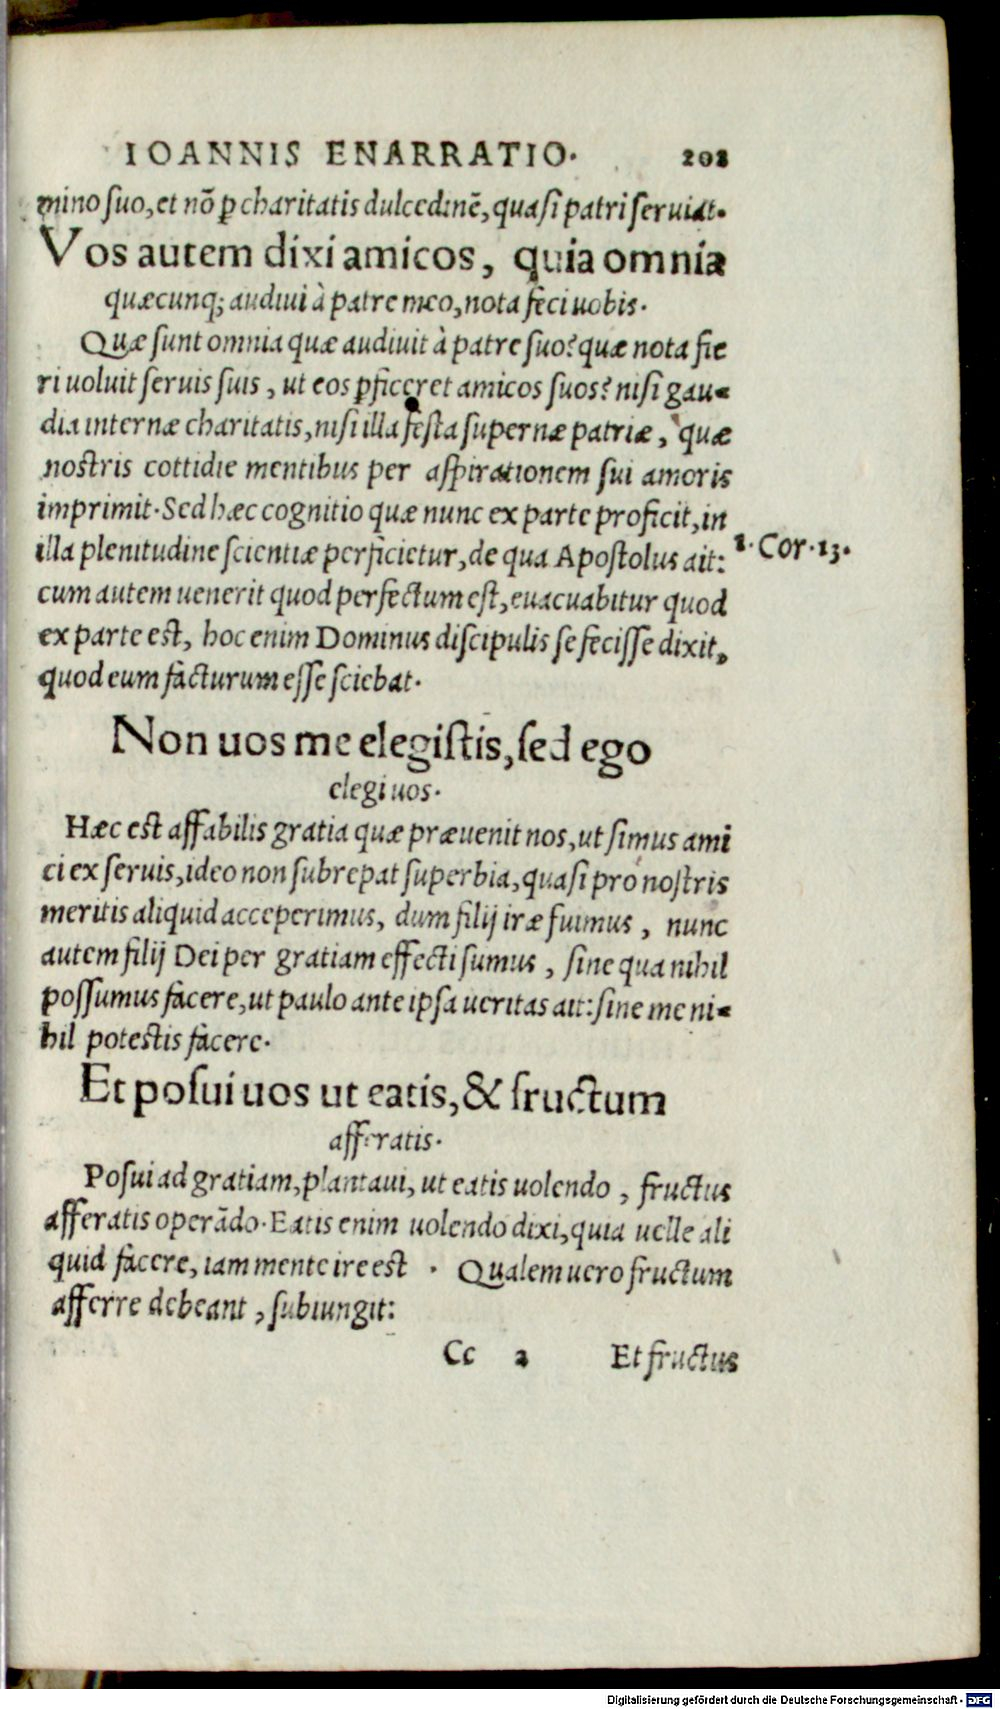 IOANNIS ENARRATIO. 202
mino suo, et nõ ꝑ charitatis dulcedinẽ, quasi patri seruiat.
Vos autem dixi amicos, quia omnia
quæcunq; audiui à patre meo, nota feci uobis.
Quæ sunt omnia quæ audiuit à patre suo? quæ nota fie
ri uoluit seruis suis, ut eos ꝑficeret amicos suos? nisi gau-
dia internæ charitatis, nisi illa festa supernæ patriæ, quæ
nostris cottidie mentibus per aspirationem sui amoris
imprimit. Sed hæc cognitio quæ nunc ex parte proficit, in
illa plenitudine scientiæ perficietur, de qua Apostolus ait:
1. Cor. 13.
cum autem uenerit quod perfectum est, euacuabitur quod
ex parte est, hoc enim Dominus discipulis se fecisse dixit,
quod eum facturum esse sciebat.
Non uos me elegistis, sed ego
elegi uos.
Hæc est affabilis gratia quæ præuenit nos, ut simus ami
ci ex seruis, ideo non subrepat superbia, quasi pro nostris
meritis aliquid acceperimus, dum filij iræ fuimus, nunc
autem filij Dei per gratiam effecti sumus, sine qua nihil
possumus facere, ut paulo ante ipsa ueritas ait: sine me ni-
hil potestis facere.
Et posui uos ut eatis, & fructum
afferatis.
Posui ad gratiam, plantaui, ut eatis uolendo, fructus
afferatis operãdo. Eatis enim uolendo dixi, quia uelle ali
quid facere, iam mente ire est. Qualem uero fructum
afferre debeant, subiungit:
Cc 2 Et fructus
Digitalisierung gefördert durch die Deutsche Forschungsgemeinschaft - DFG